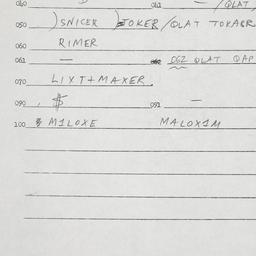 040 041 — /QLAT
050 )SNICER )JOKER /QLAT TOKAGR
060 RIMER
061 — 062 QLAT QAP
070 LIXT+MAXER.
090 , $ 091 —
100 $ M1LOXE MALOX1M